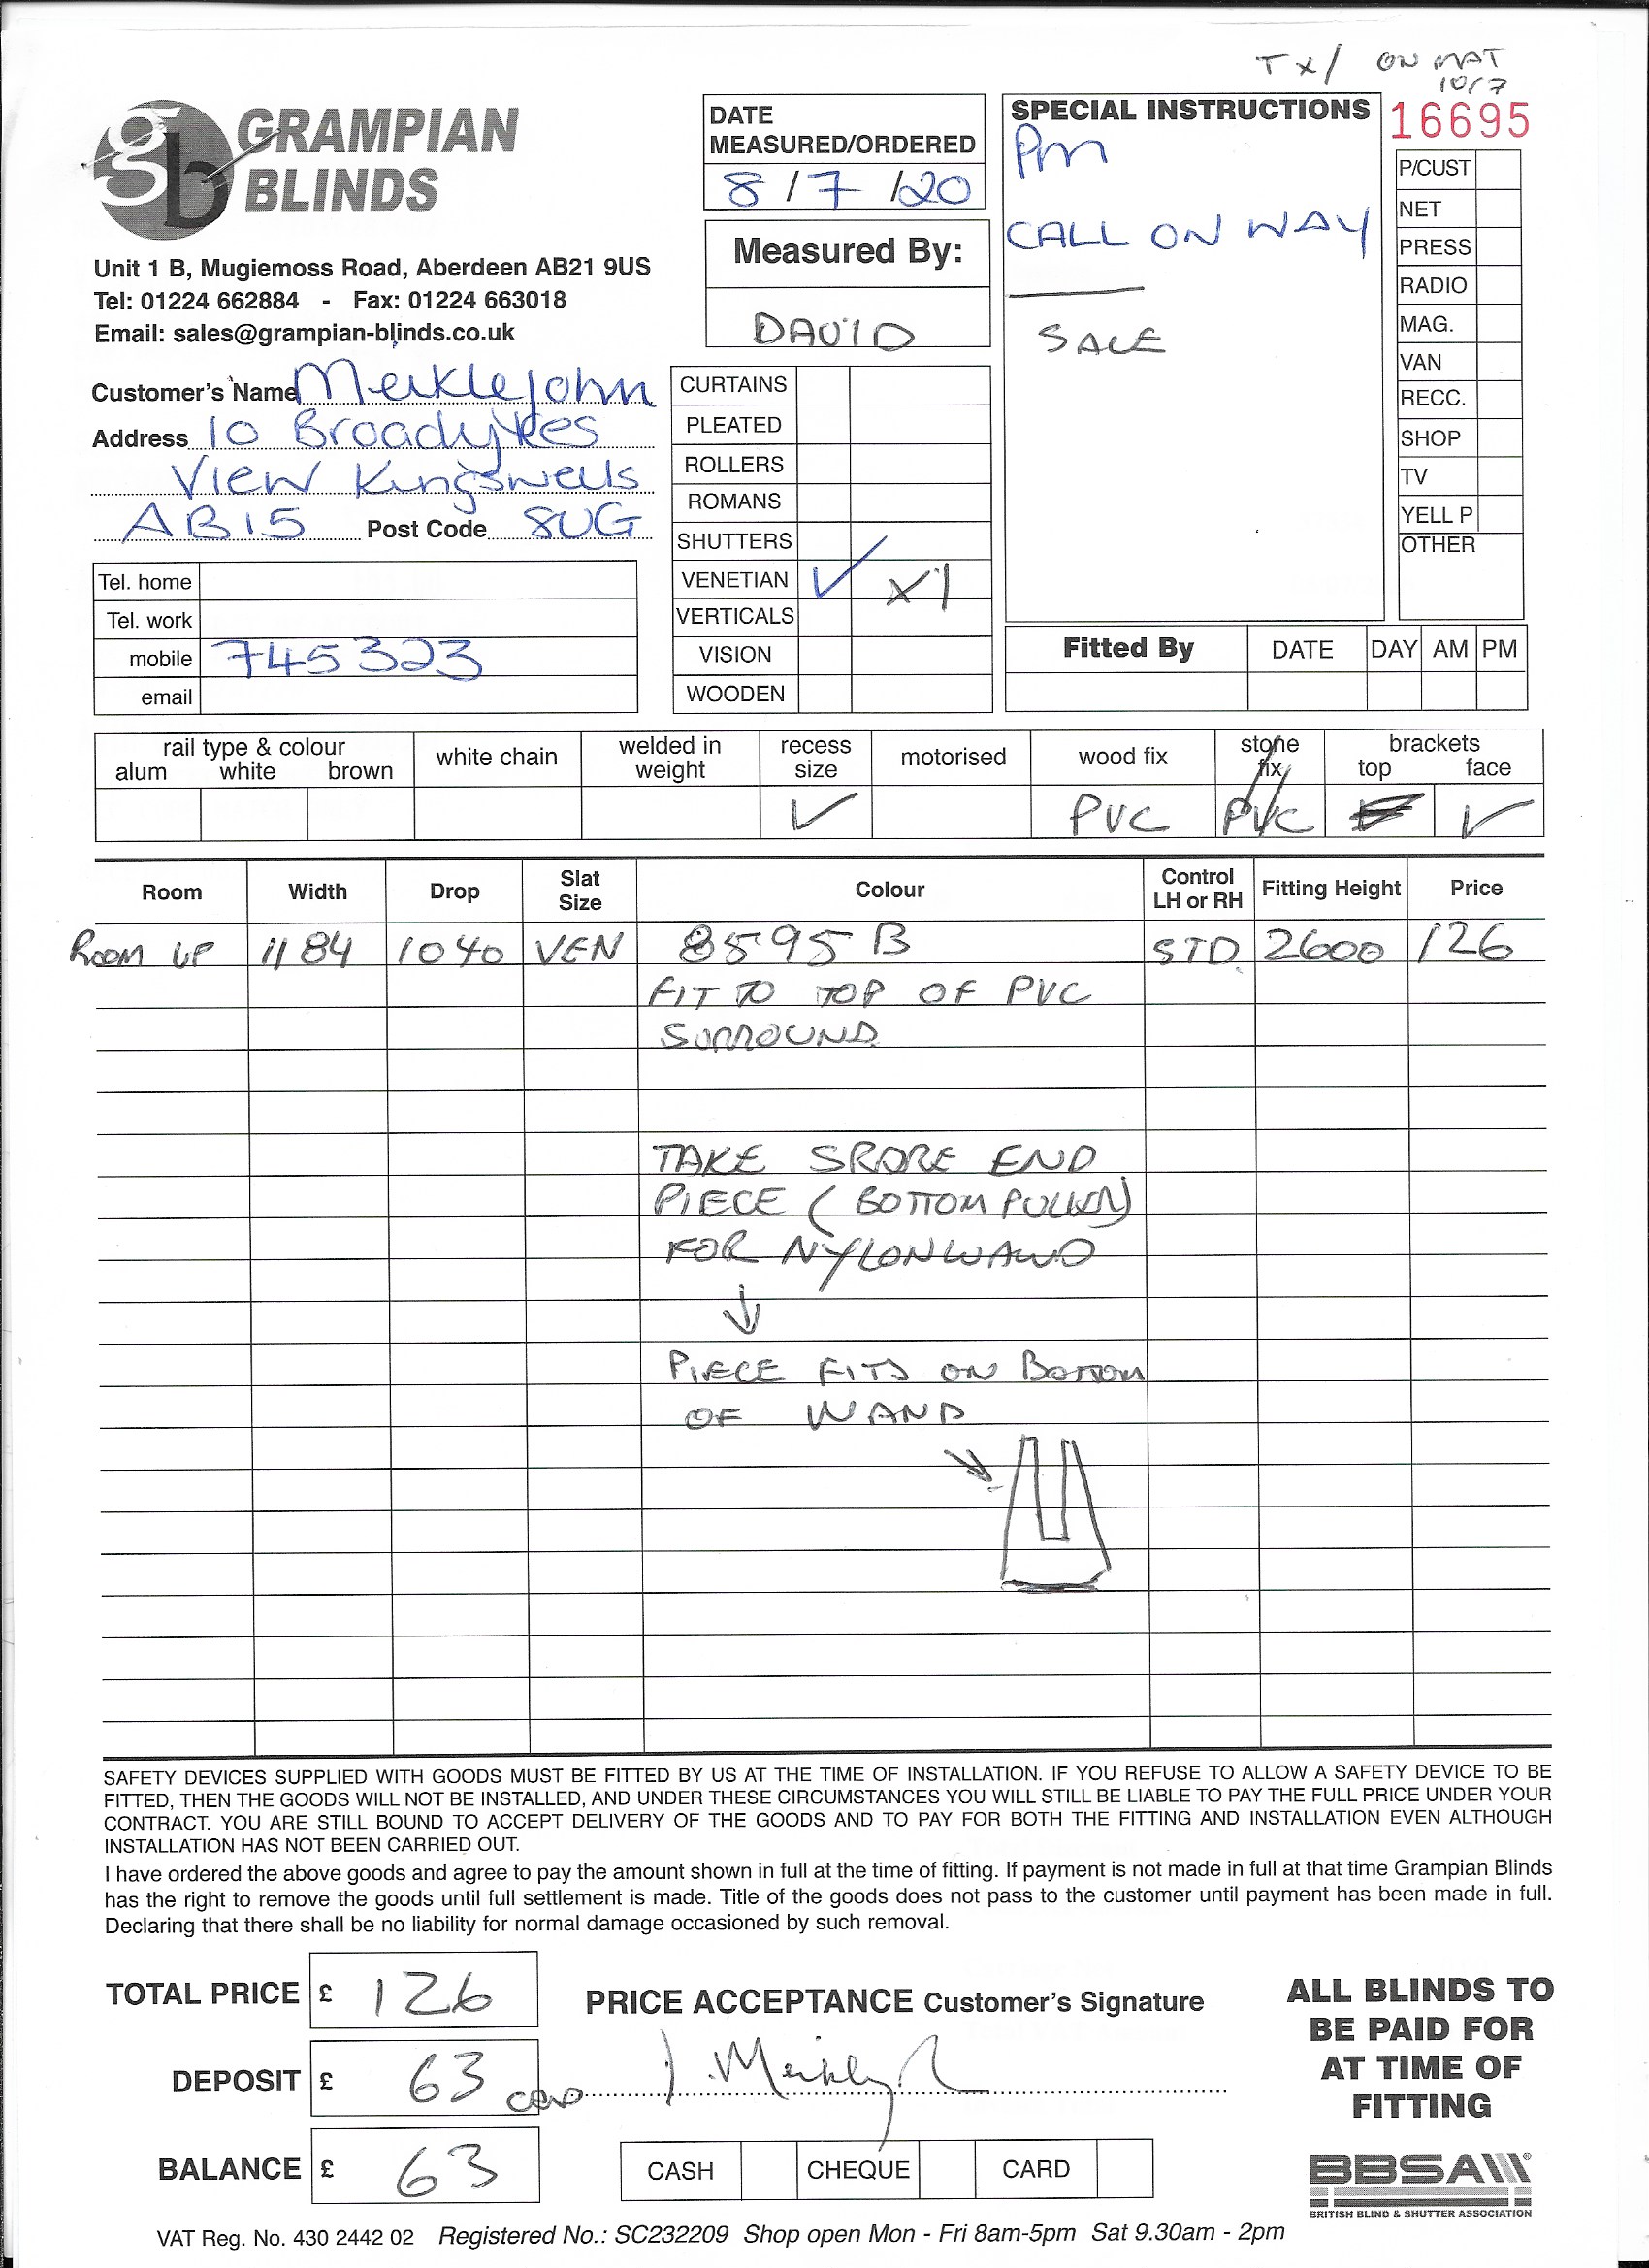 TX/ ON MAT
10/7
GRAMPIAN
BLINDS
Unit 1 B, Mugiemoss Road, Aberdeen AB21 9US
Tel: 01224 662884 - Fax: 01224 663018
Email: sales@grampian-blinds.co.uk
Customer's Name Meiklejohn
Address 10 Broadykes
View Kingswells
AB15 Post Code 8UG
Tel. home
Tel. work
mobile 745323
email
DATE
MEASURED/ORDERED
8/7/20
Measured By:
DAVID
CURTAINS
PLEATED
ROLLERS
ROMANS
SHUTTERS
VENETIAN ✓ X1
VERTICALS
VISION
WOODEN
SPECIAL INSTRUCTIONS
Pm
CALL ON WAY
SALE
16695
P/CUST
NET
PRESS
RADIO
MAG.
VAN
RECC.
SHOP
TV
YELL P
OTHER
Fitted By DATE DAY AM PM
rail type & colour white chain welded in weight recess size motorised wood fix stone fix brackets
alum white brown top face
✓ PVC PVC ✓
Room Width Drop Slat Size Colour Control LH or RH Fitting Height Price
ROOM UP 1184 1040 VEN 8595 B STD 2600 126
FIT TO TOP OF PVC
SURROUND
TAKE SRORE END
PIECE (BOTTOM PULLEN)
FOR NYLON WAND
↓
PIECE FITS ON BOTTOM
OF WAND
SAFETY DEVICES SUPPLIED WITH GOODS MUST BE FITTED BY US AT THE TIME OF INSTALLATION. IF YOU REFUSE TO ALLOW A SAFETY DEVICE TO BE
FITTED, THEN THE GOODS WILL NOT BE INSTALLED, AND UNDER THESE CIRCUMSTANCES YOU WILL STILL BE LIABLE TO PAY THE FULL PRICE UNDER YOUR
CONTRACT. YOU ARE STILL BOUND TO ACCEPT DELIVERY OF THE GOODS AND TO PAY FOR BOTH THE FITTING AND INSTALLATION EVEN ALTHOUGH
INSTALLATION HAS NOT BEEN CARRIED OUT.
I have ordered the above goods and agree to pay the amount shown in full at the time of fitting. If payment is not made in full at that time Grampian Blinds
has the right to remove the goods until full settlement is made. Title of the goods does not pass to the customer until payment has been made in full.
Declaring that there shall be no liability for normal damage occasioned by such removal.
TOTAL PRICE £ 126
DEPOSIT £ 63 CARD
BALANCE £ 63
PRICE ACCEPTANCE Customer's Signature
CASH CHEQUE CARD
ALL BLINDS TO
BE PAID FOR
AT TIME OF
FITTING
BBSA
BRITISH BLIND & SHUTTER ASSOCIATION
VAT Reg. No. 430 2442 02 Registered No.: SC232209 Shop open Mon - Fri 8am-5pm Sat 9.30am - 2pm